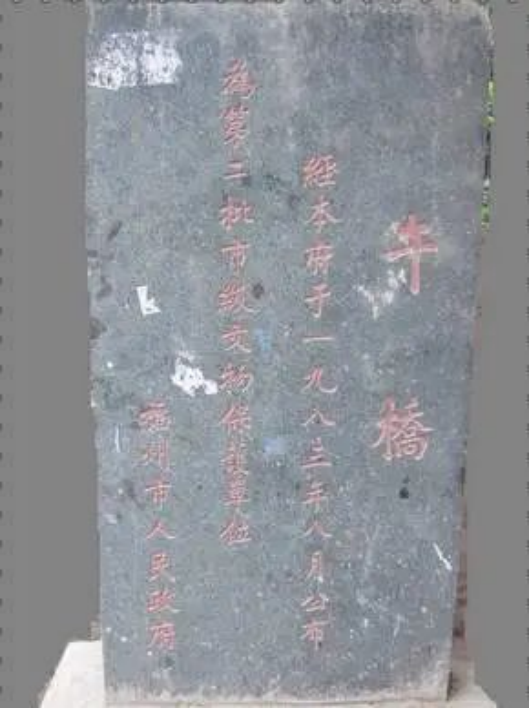 牛橋
經本府于一九八三年八月公布
為第二批市級文物保護單位
福州市人民政府